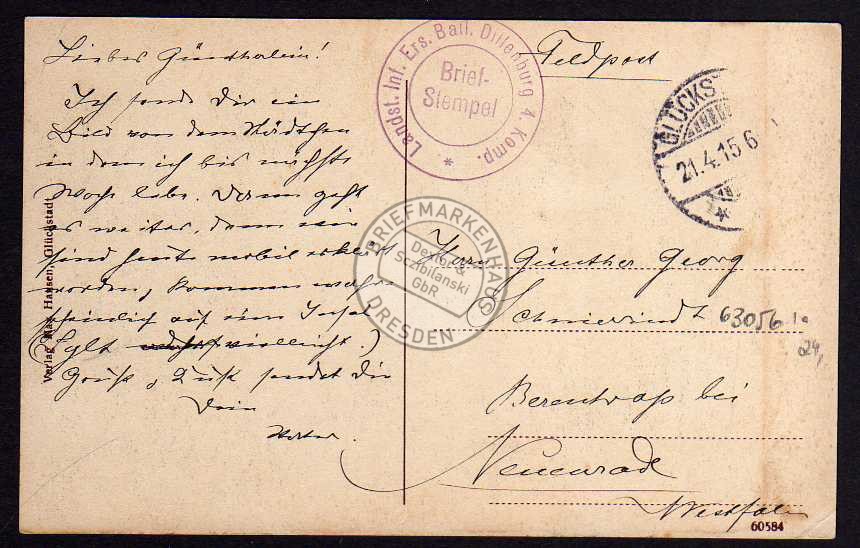 Liebes Güntherlein!
Ich sende Dir ein
Bild von dem Städtchen
in dem ich bis nächste
Woche lebe. Dann geht
es weiter, denn wir
sind heute mobil erklärt
worden, kommen wahr
scheinlich auf eine Insel
(Sylt vielleicht.)
Gruß, Kuß sendet Dir
Dein
Verlag Max Hansen, Glückstadt
Landst. Inf. Ers. Batl. Dillenburg 4. Komp.
Brief-
Stempel
*
Feldpost
GLÜCKST
21.4.15 6
*
BRIEFMARKENHAUS
Dexior &
Sczibilanski
GbR
DRESDEN
Herrn Günther Georg
Schniewindt
63056
24,
Berentrop bei
Neuenrade
Westfalen
60584